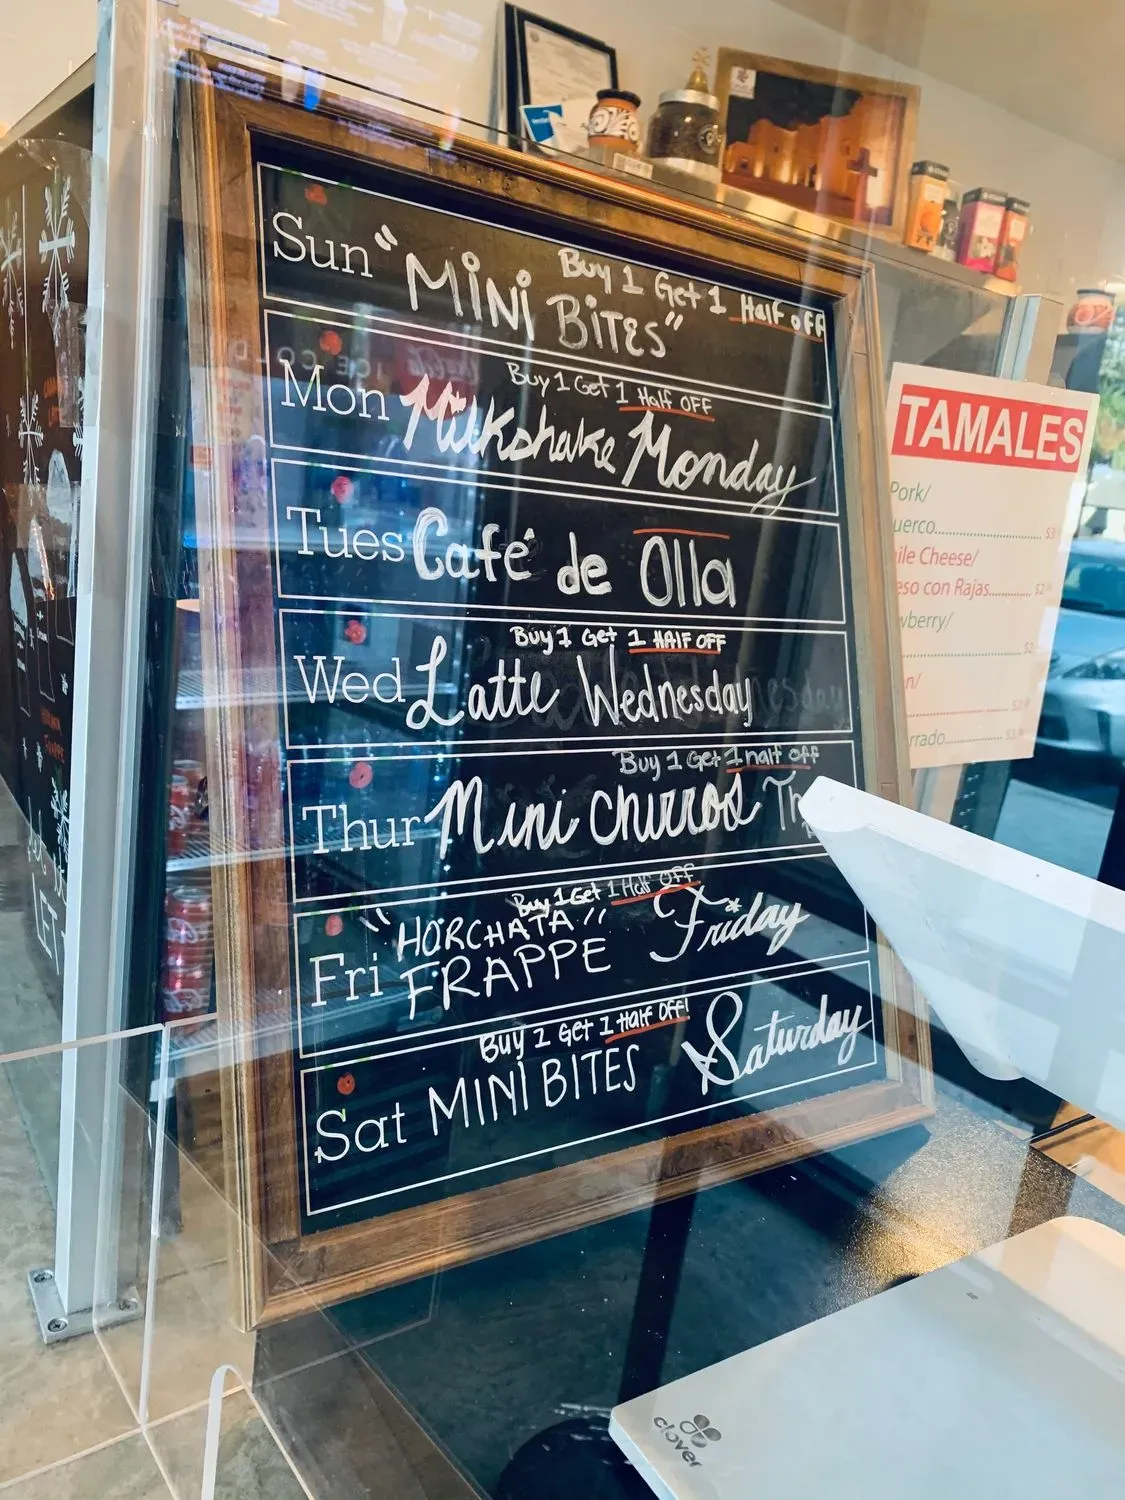 Sun
Buy 1 Get 1 Half off
"MiNi BiTES"
Mon
Buy 1 Get 1 Half OFF
Milkshake Monday
Tues
Café de Olla
Wed
Buy 1 Get 1 HAlF OFF
Latte Wednesday
Thur
Buy 1 Get 1 half off
Mini Churros Th
Fri
Buy 1 Get 1 Half OFF
"HORCHATA"
FRAPPE Friday
Sat
Buy 1 Get 1 Half Off!
MINI BITES Saturday
TAMALES
Pork/
uerco
ile Cheese/
eso con Rajas
wberry/
n/
rrado
clover